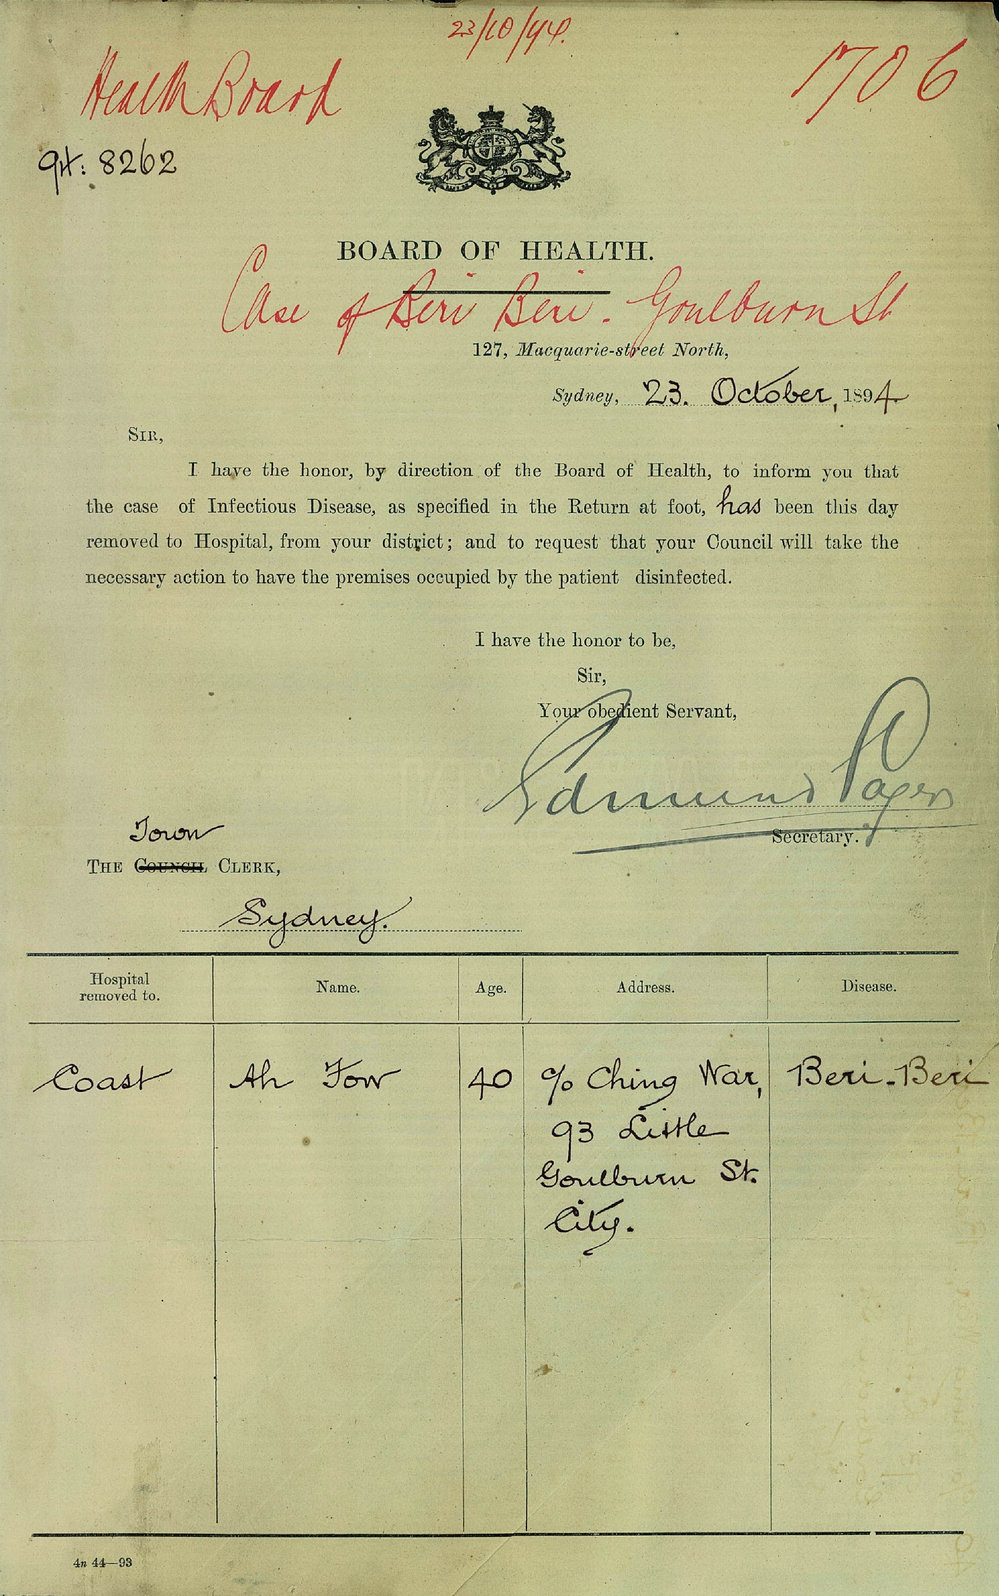 23/10/94.
Health Board
1706
94: 8262
BOARD OF HEALTH.
Case of Beri Beri - Goulburn St
127, Macquarie-street North,
Sydney, 23. October, 1894
SIR,
I have the honor, by direction of the Board of Health, to inform you that
the case of Infectious Disease, as specified in the Return at foot, has been this day
removed to Hospital, from your district; and to request that your Council will take the
necessary action to have the premises occupied by the patient disinfected.
I have the honor to be,
Sir,
Your obedient Servant,
Edmund Sager
Secretary.
Town
THE COUNCIL CLERK,
Sydney.
Hospital removed to. Name. Age. Address. Disease.
Coast Ah Fow 40 c/o Ching War, Beri-Beri
93 Little
Goulburn St.
City.
4n 44—93